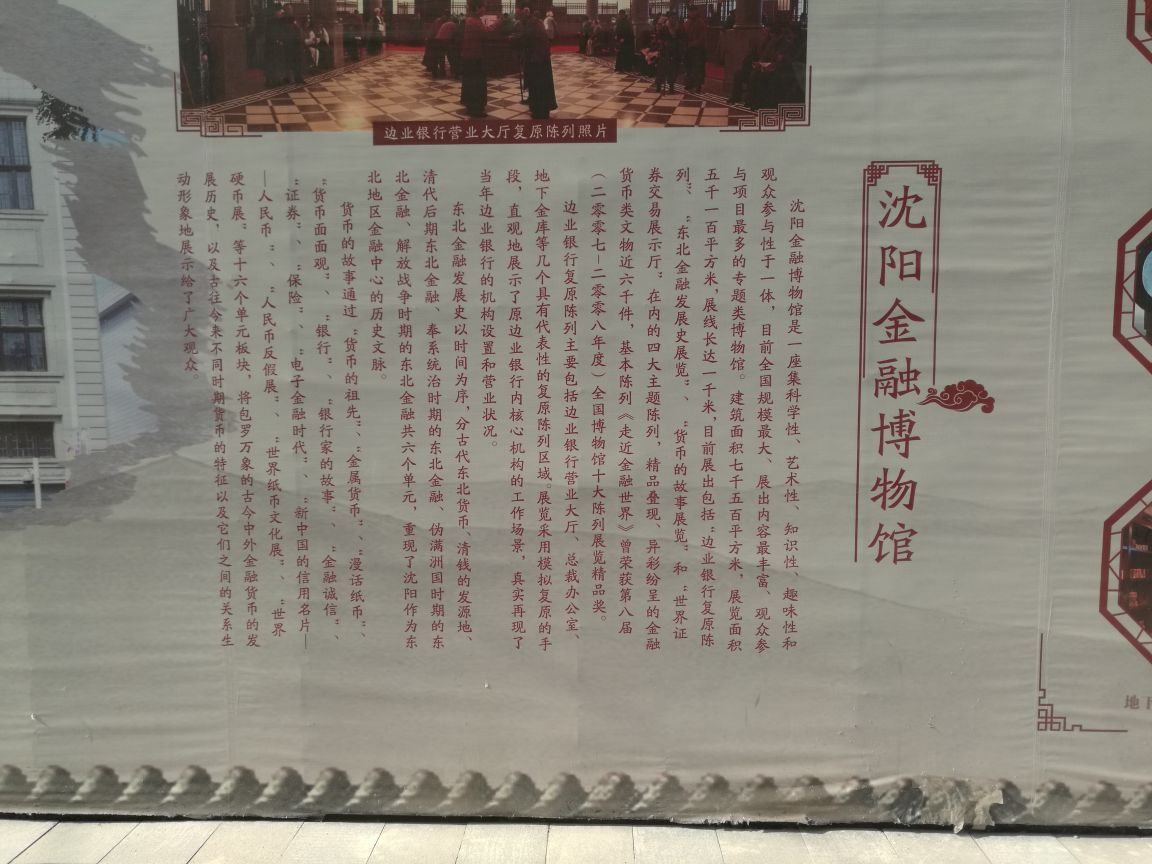 边业银行营业大厅复原陈列照片
沈阳金融博物馆
沈阳金融博物馆是一座集科学性、艺术性、知识性、趣味性和
观众参与性于一体，目前全国规模最大、展出内容最丰富、观众参
与项目最多的专题类博物馆。建筑面积七千五百平方米，展览面积
五千一百平方米，展线长达一千米，目前展出包括“边业银行复原陈
列”、“东北金融发展史展览”、“货币的故事展览”和“世界证
券交易展示厅”在内的四大主题陈列，精品叠现、异彩纷呈的金融
货币类文物近六千件，基本陈列《走近金融世界》曾荣获第八届
（二零零七—二零零八年度）全国博物馆十大陈列展览精品奖。
边业银行复原陈列主要包括边业银行营业大厅、总裁办公室、
地下金库等几个具有代表性的复原陈列区域。展览采用模拟复原的手
段，直观地展示了原边业银行内核心机构的工作场景，真实再现了
当年边业银行的机构设置和营业状况。
东北金融发展史以时间为序，分古代东北货币、清钱的发源地、
清代后期东北金融、奉系统治时期的东北金融、伪满洲国时期的东
北金融、解放战争时期的东北金融共六个单元，重现了沈阳作为东
北地区金融中心的历史文脉。
货币的故事通过“货币的祖先”、“金属货币”、“漫话纸币”、
“货币面面观”、“银行”、“银行家的故事”、“金融诚信”、
“证券”、“保险”、“电子金融时代”、“新中国的信用名片—
—人民币”、“人民币反假展”、“世界纸币文化展”、“世界
硬币展”等十六个单元板块，将包罗万象的古今中外金融货币的发
展历史，以及古往今来不同时期货币的特征以及它们之间的关系生
动形象地展示给了广大观众。
地下